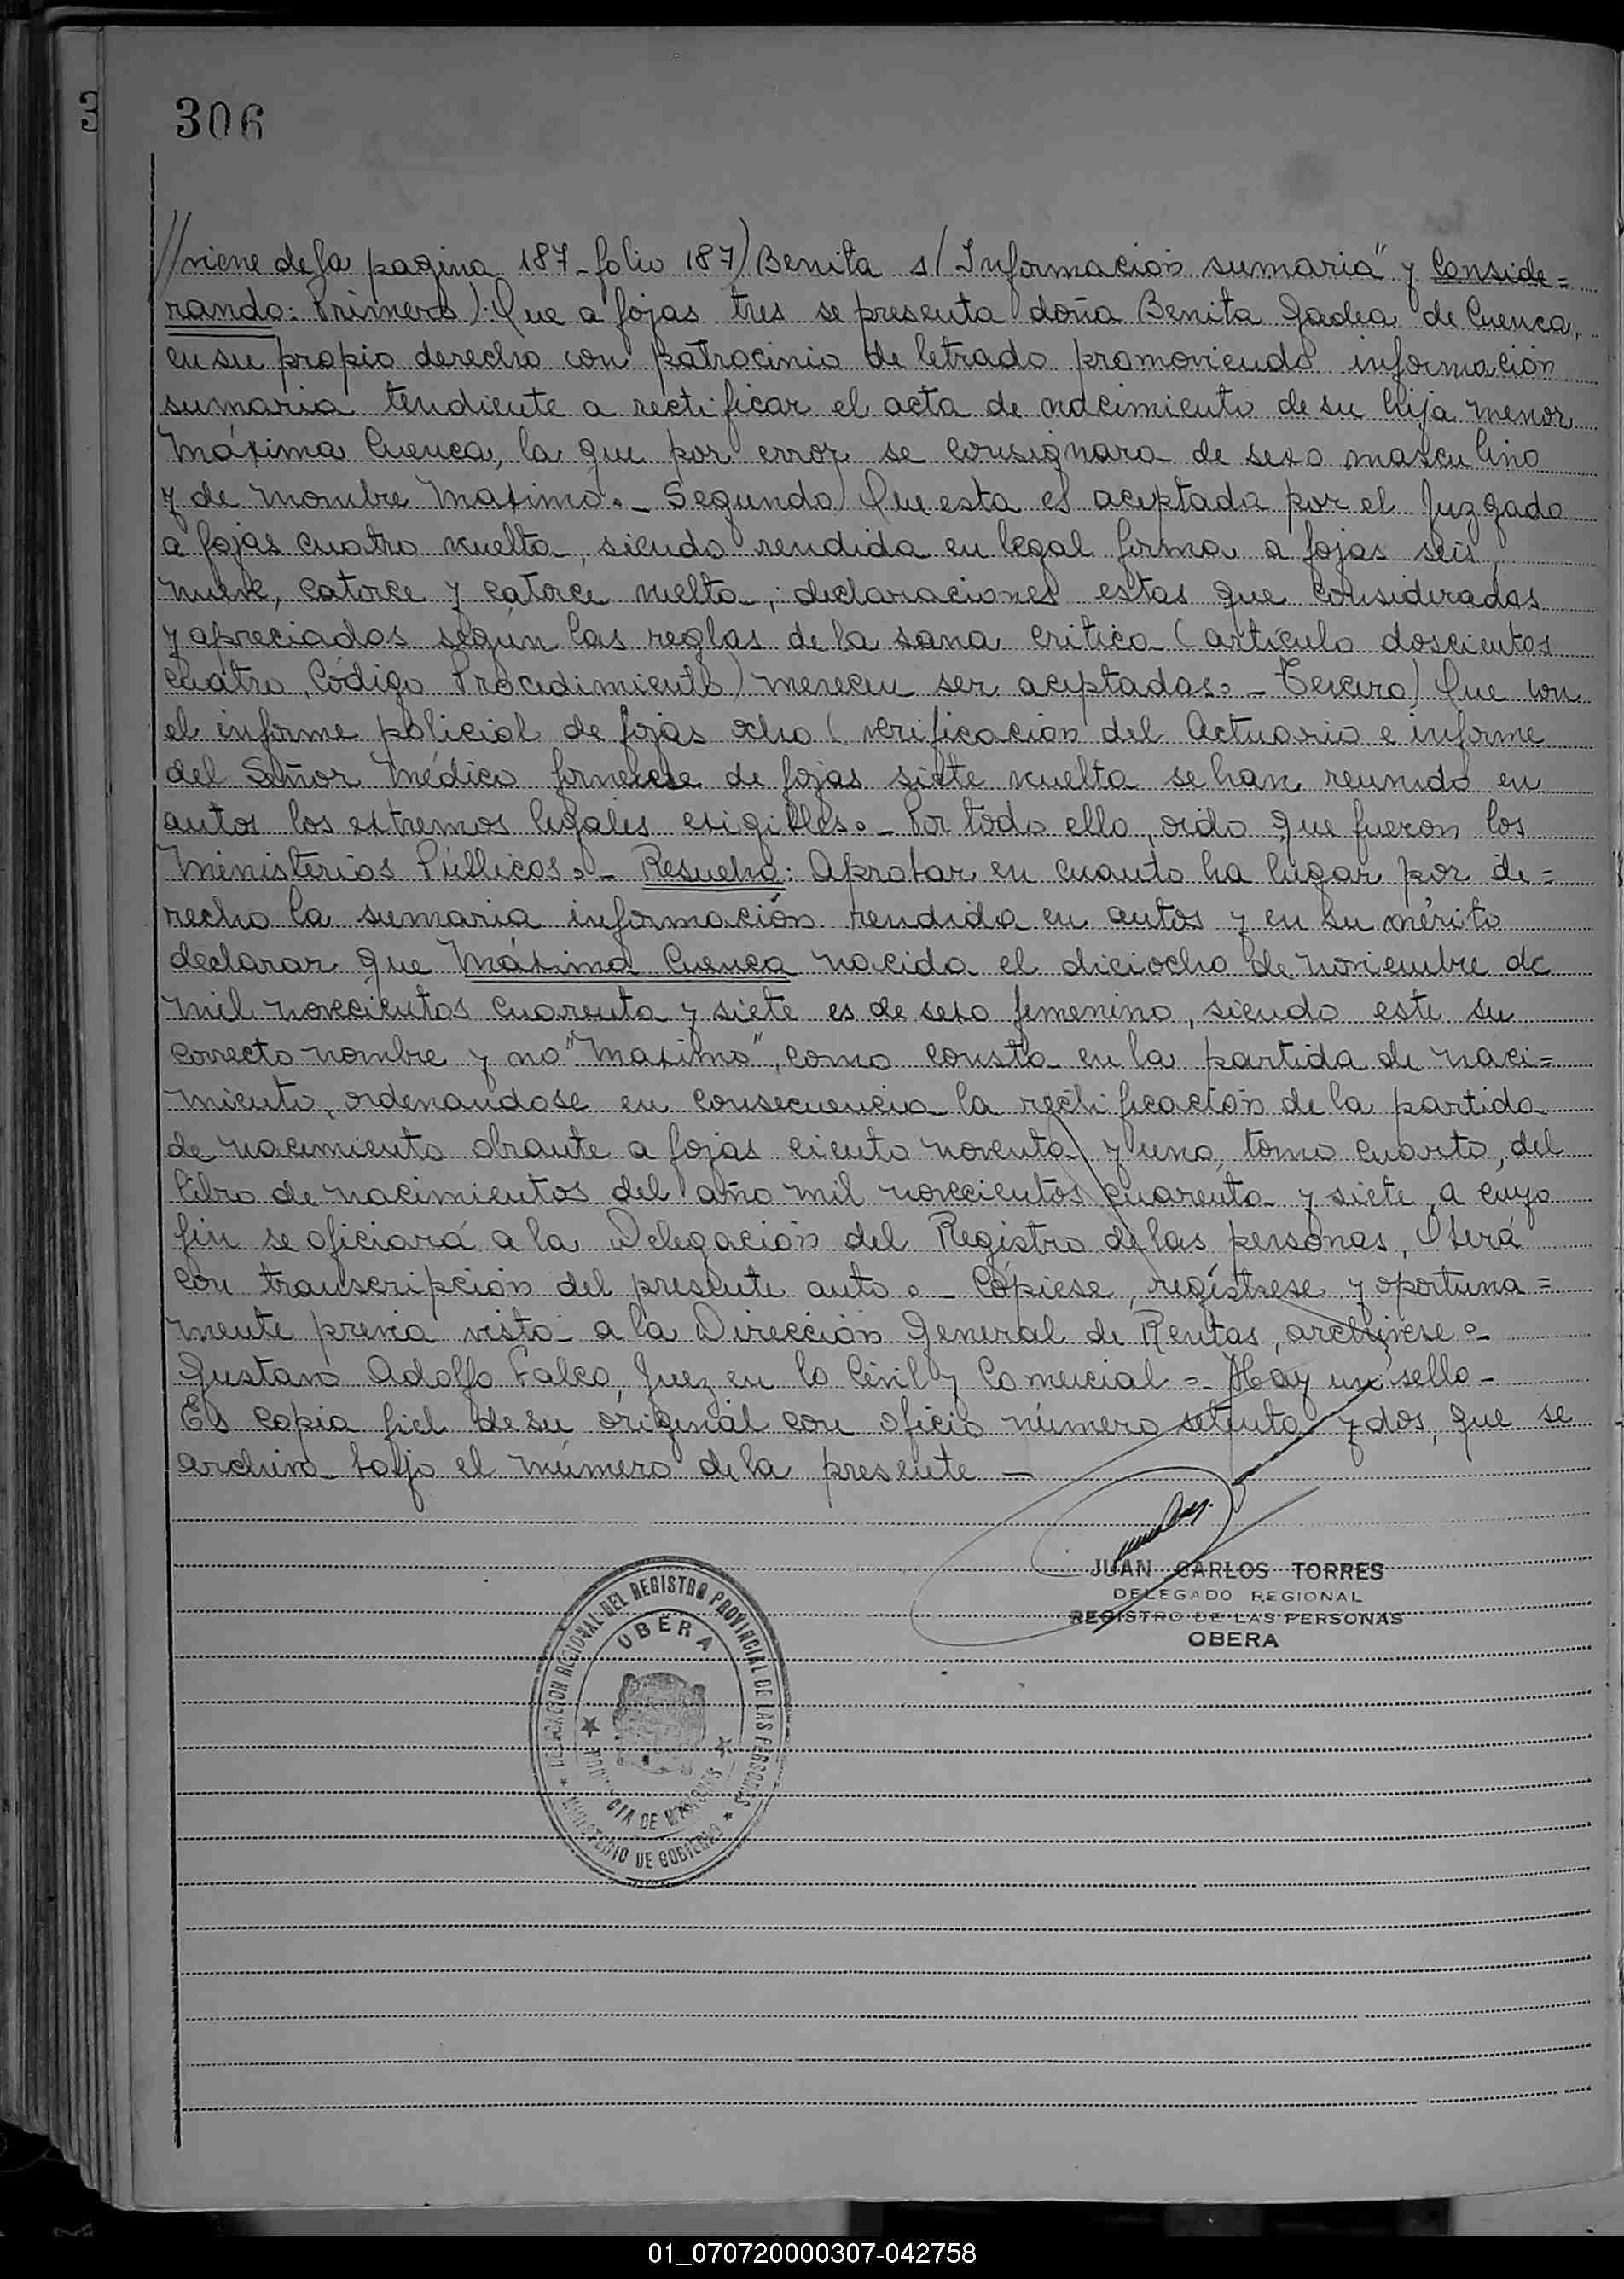 3
306
//viene de la pagina 187-folio 187) Benita s/Información sumaria" y Conside=
rando: Primero). Que a fojas tres se presenta doña Benita Gadea de Cuenca,
en su propio derecho con patrocinio de letrado promoviendo información
sumaria tendiente a rectificar el acta de nacimiento de su hija menor
Máxima Cuenca, la que por error se consignara de sexo masculino
y de nombre Maximo.- Segundo) Que esta es aceptada por el Juzgado
a fojas cuatro vuelta, siendo rendida en legal forma a fojas seis,
nueve, catorce y catorce vuelta, declaraciones estas que consideradas
y apreciadas según las reglas de la sana critica (artículo doscientos
cuatro, Código Procedimiento) merecen ser aceptadas.- Tercero) Que con
el informe policial de fojas ocho (verificación del Actuario e informe
del Señor Médico forense de fojas siete vuelta se han reunido en
autos los extremos legales exigibles.- Por todo ello, oido que fueron los
Ministerios Públicos.- Resuelvo: Aprobar en cuanto ha lugar por de=
recho la sumaria información rendida en autos y en su mérito
declarar que Máxima Cuenca nacida el dieciocho de noviembre de
mil novecientos cuarenta y siete es de sexo femenino, siendo este su
correcto nombre y no "Maximo", como consta en la partida de naci=
miento, ordenandose en consecuencia la rectificación de la partida
de nacimiento obrante a fojas ciento noventa y una, tomo cuarto, del
libro de nacimientos del año mil novecientos cuarenta y siete, a cuyo
fin se oficiará a la Delegación del Registro de las personas, Oberá
con transcripción del presente auto.- Cópiese, regístrese y oportuna=
mente previa vista a la Dirección General de Rentas, archívese.-
Gustavo Adolfo Falco, Juez en lo Civil y Comercial =- Hay un sello-
Es copia fiel de su original con oficio número setenta y dos, que se
archiva bajo el número de la presente -
JUAN CARLOS TORRES
DELEGADO REGIONAL
REGISTRO DE LAS PERSONAS
OBERA
DELEGACION REGIONAL DEL REGISTRO PROVINCIAL DE LAS PERSONAS
OBERA
PROVINCIA DE MISIONES
MINISTERIO DE GOBIERNO
01_070720000307-042758